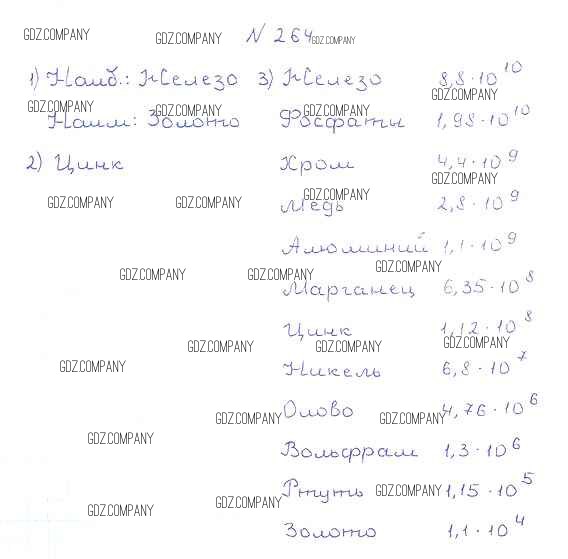 N 264
1) Наиб.: Железо 3) Железо 8,8·10^10
Наим: Золото Фосфаты 1,98·10^10
2) Цинк Хром 4,4·10^9
Медь 2,8·10^9
Алюминий 1,1·10^9
Марганец 6,35·10^8
Цинк 1,12·10^8
Никель 6,8·10^7
Олово 4,76·10^6
Вольфрам 1,3·10^6
Ртуть 1,15·10^5
Золото 1,1·10^4
GDZ.COMPANY GDZ.COMPANY GDZ.COMPANY
GDZ.COMPANY
GDZ.COMPANY GDZ.COMPANY GDZ.COMPANY
GDZ.COMPANY
GDZ.COMPANY GDZ.COMPANY GDZ.COMPANY
GDZ.COMPANY GDZ.COMPANY GDZ.COMPANY
GDZ.COMPANY GDZ.COMPANY GDZ.COMPANY
GDZ.COMPANY
GDZ.COMPANY GDZ.COMPANY
GDZ.COMPANY
GDZ.COMPANY GDZ.COMPANY GDZ.COMPANY